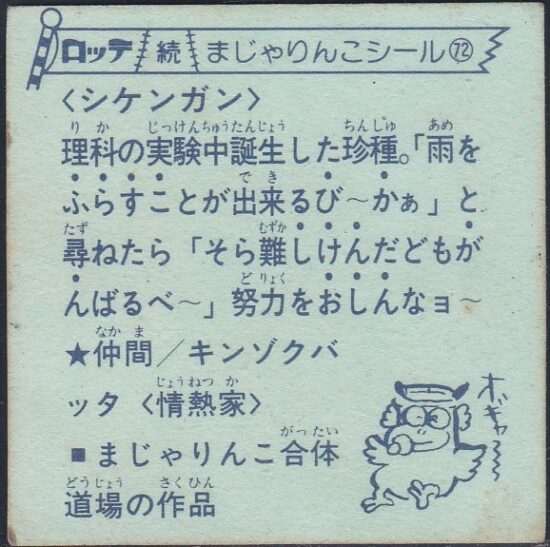 ロッテ 続 まじゃりんこシール 72
〈シケンガン〉
理科の実験中誕生した珍種。「雨を
ふらすことが出来るび〜かぁ」と
尋ねたら「そら難しけんだどもが
んばるべ〜」努力をおしんなョ〜
★仲間／キンゾクバ
ッタ〈情熱家〉
■まじゃりんこ合体
道場の作品
オギャ〜